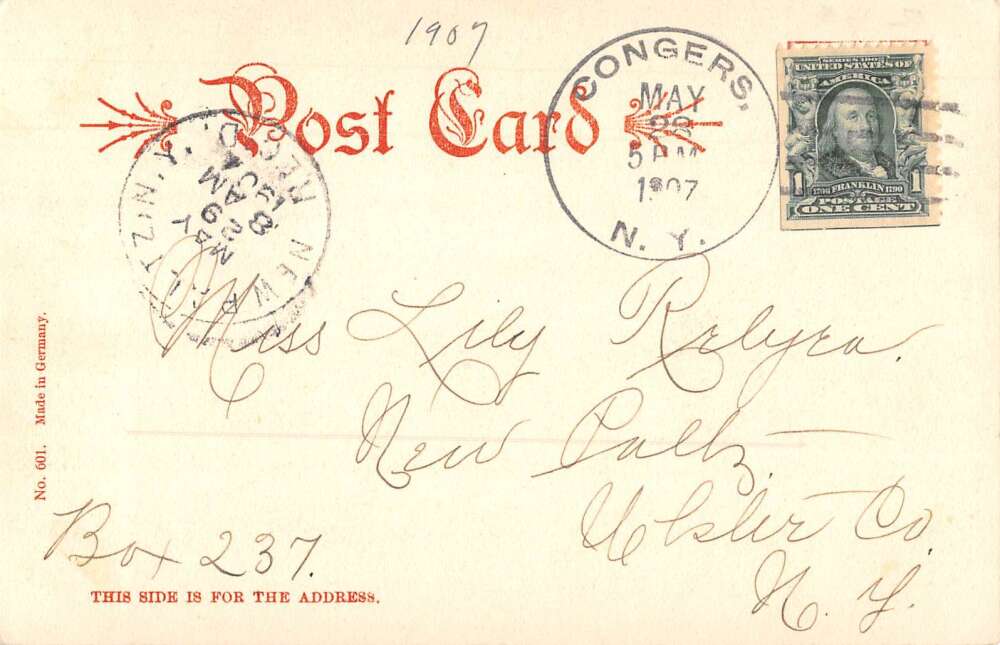 1907
Post Card
CONGERS,
MAY
28
5 PM
1907
N. Y.
SERIES 1902
UNITED STATES OF
AMERICA
1706 FRANKLIN 1790
1 1
POSTAGE
ONE CENT
NEW PALTZ, N. Y.
REC'D.
MAY
29
8
AM
Miss Lily Relyea.
New Paltz
Ulster Co.
N. Y.
Box 237.
No. 601. Made in Germany.
THIS SIDE IS FOR THE ADDRESS.